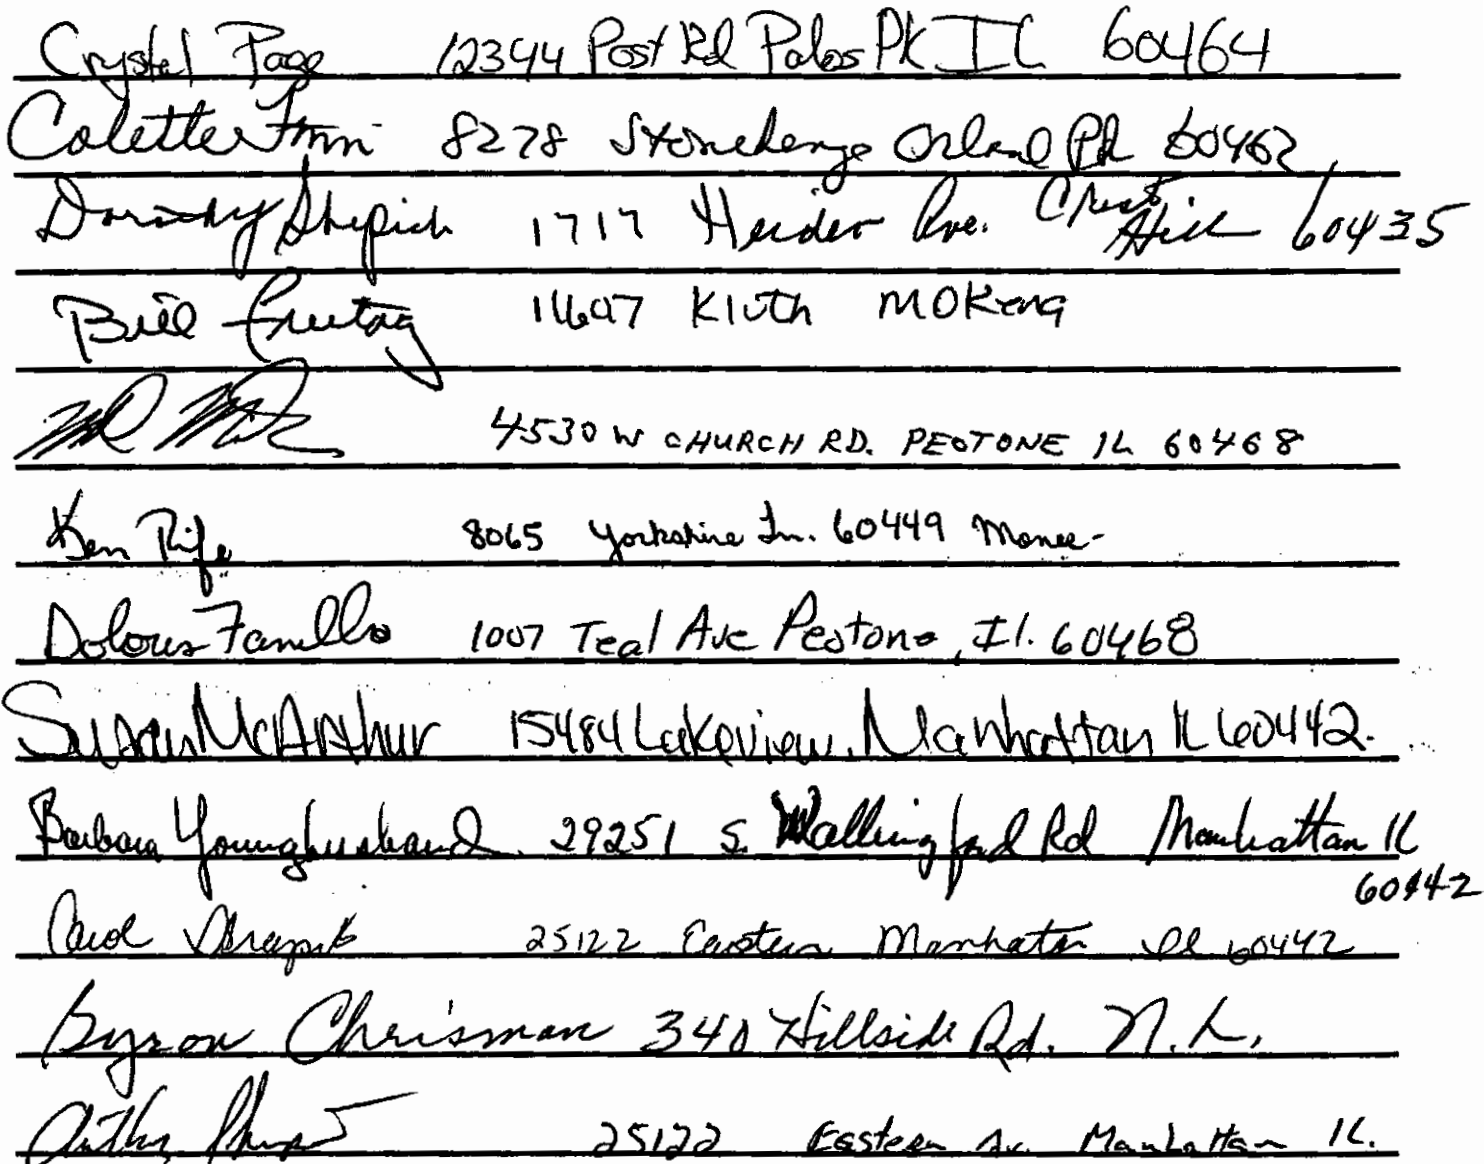 Crystal Page 12344 Post Rd Palos Pk IL 60464
Colette 8278 Stonehenge Orland Pk 60462
Dorothy Shepich 1717 Heider Ave. Crest Hill 60435
Bill Freitag 11607 Kluth MOKena
4530 W CHURCH RD. PEOTONE IL 60468
Ken Rife 8065 Yorkshire Ln. 60449 Monee
Dolores Fanello 1007 Teal Ave Peotone, Il. 60468
Susan McArthur 15484 Lakeview, Manhattan IL 60442.
Barbara Younghusband 29251 S. Wallingford Rd Manhattan IL
60442
Carol 25122 Eastern Manhatan Il 60442
Byron Chrisman 340 Hillside Rd. N.L.
25122 Eastern Av. Manhattan IL.